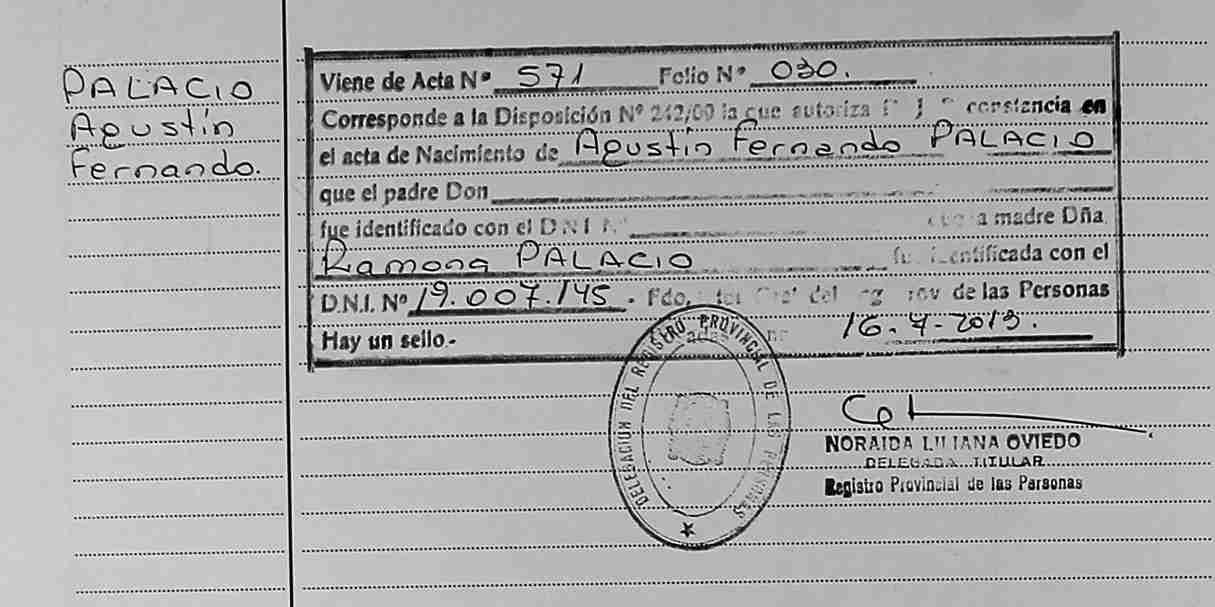 PALACIO
Agustín
Fernando.
Viene de Acta Nº 571 Folio Nº 030.
Corresponde a la Disposición Nº 242/00 la que autoriza constancia en
el acta de Nacimiento de Agustín Fernando PALACIO
que el padre Don
fue identificado con el D.N.I. Nº a madre Dña
Ramona PALACIO identificada con el
D.N.I. Nº 19.007.145. Fdo. del de las Personas
Hay un sello.- 16-4-2013.
DELEGACION DEL REGISTRO PROVINCIAL DE LAS PERSONAS
NORAIDA LILIANA OVIEDO
DELEGADA TITULAR
Registro Provincial de las Personas